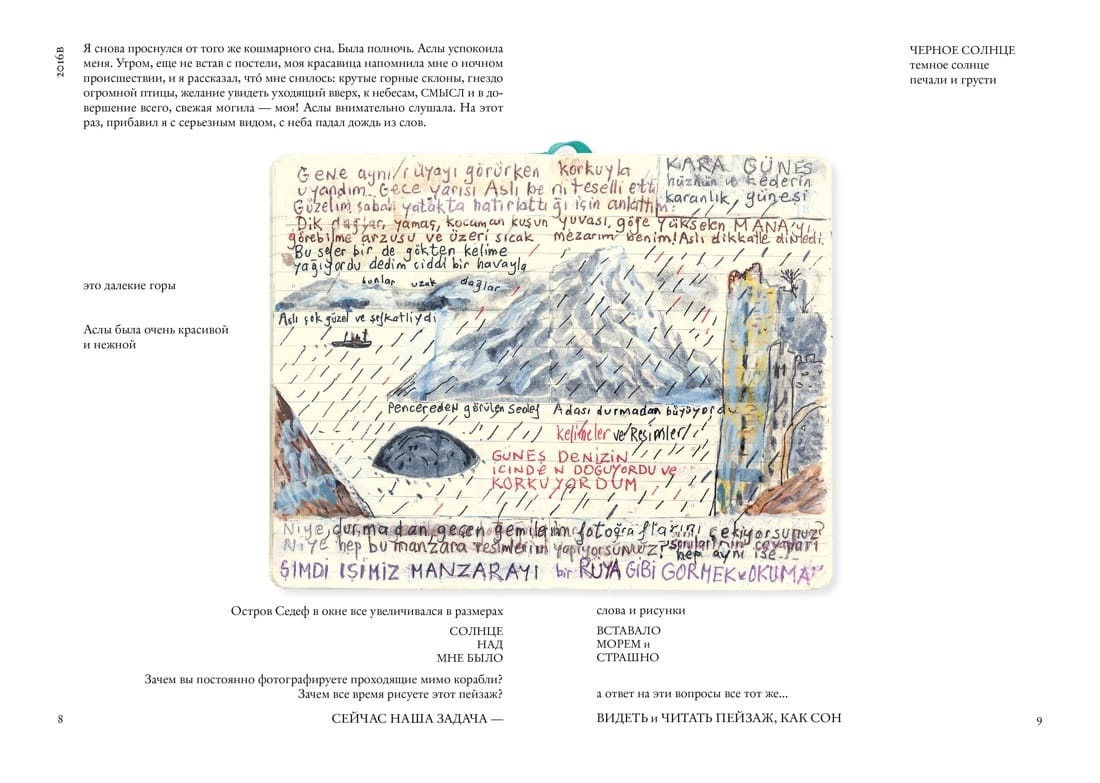 2016В
Я снова проснулся от того же кошмарного сна. Была полночь. Аслы успокоила
меня. Утром, еще не встав с постели, моя красавица напомнила мне о ночном
происшествии, и я рассказал, что́ мне снилось: крутые горные склоны, гнездо
огромной птицы, желание увидеть уходящий вверх, к небесам, СМЫСЛ и в до-
вершение всего, свежая могила — моя! Аслы внимательно слушала. На этот
раз, прибавил я с серьезным видом, с неба падал дождь из слов.
ЧЕРНОЕ СОЛНЦЕ
темное солнце
печали и грусти
Gene aynı rüyayı görürken korkuyla
uyandım. Gece yarısı Aslı beni teselli etti
Güzelim sabah yatakta hatırlattığı için anlattım:
Dik dağlar, yamaç, kocaman kuşun yuvası, göğe yükselen MANA'yı
görebilme arzusu ve üzeri sıcak mezarım benim! Aslı dikkatle dinledi.
Bu sefer bir de gökten kelime
yağıyordu dedim ciddi bir havayla
KARA GÜNEŞ
hüznün ve kederin
karanlık, güneşi
bunlar uzak dağlar
Aslı çok güzel ve şefkatliydi
Pencereden görülen Sedef Adası durmadan büyüyordu
kelimeler ve Resimler
GÜNEŞ DENİZİN
İÇİNDEN DOĞUYORDU ve
KORKUYORDUM
Niye, durmadan geçen gemilerin fotoğraflarını çekiyorsunuz?
Niye hep bu manzara resimlerini yapıyorsunuz? soruların cevapları
hep aynı ise...
ŞİMDİ İŞİMİZ MANZARAYI bir RÜYA GİBİ GÖRMEK ve OKUMAK
это далекие горы
Аслы была очень красивой
и нежной
Остров Седеф в окне все увеличивался в размерах
слова и рисунки
СОЛНЦЕ
НАД
МНЕ БЫЛО
ВСТАВАЛО
МОРЕМ и
СТРАШНО
Зачем вы постоянно фотографируете проходящие мимо корабли?
Зачем все время рисуете этот пейзаж?
а ответ на эти вопросы все тот же...
СЕЙЧАС НАША ЗАДАЧА —
ВИДЕТЬ и ЧИТАТЬ ПЕЙЗАЖ, КАК СОН
8
9